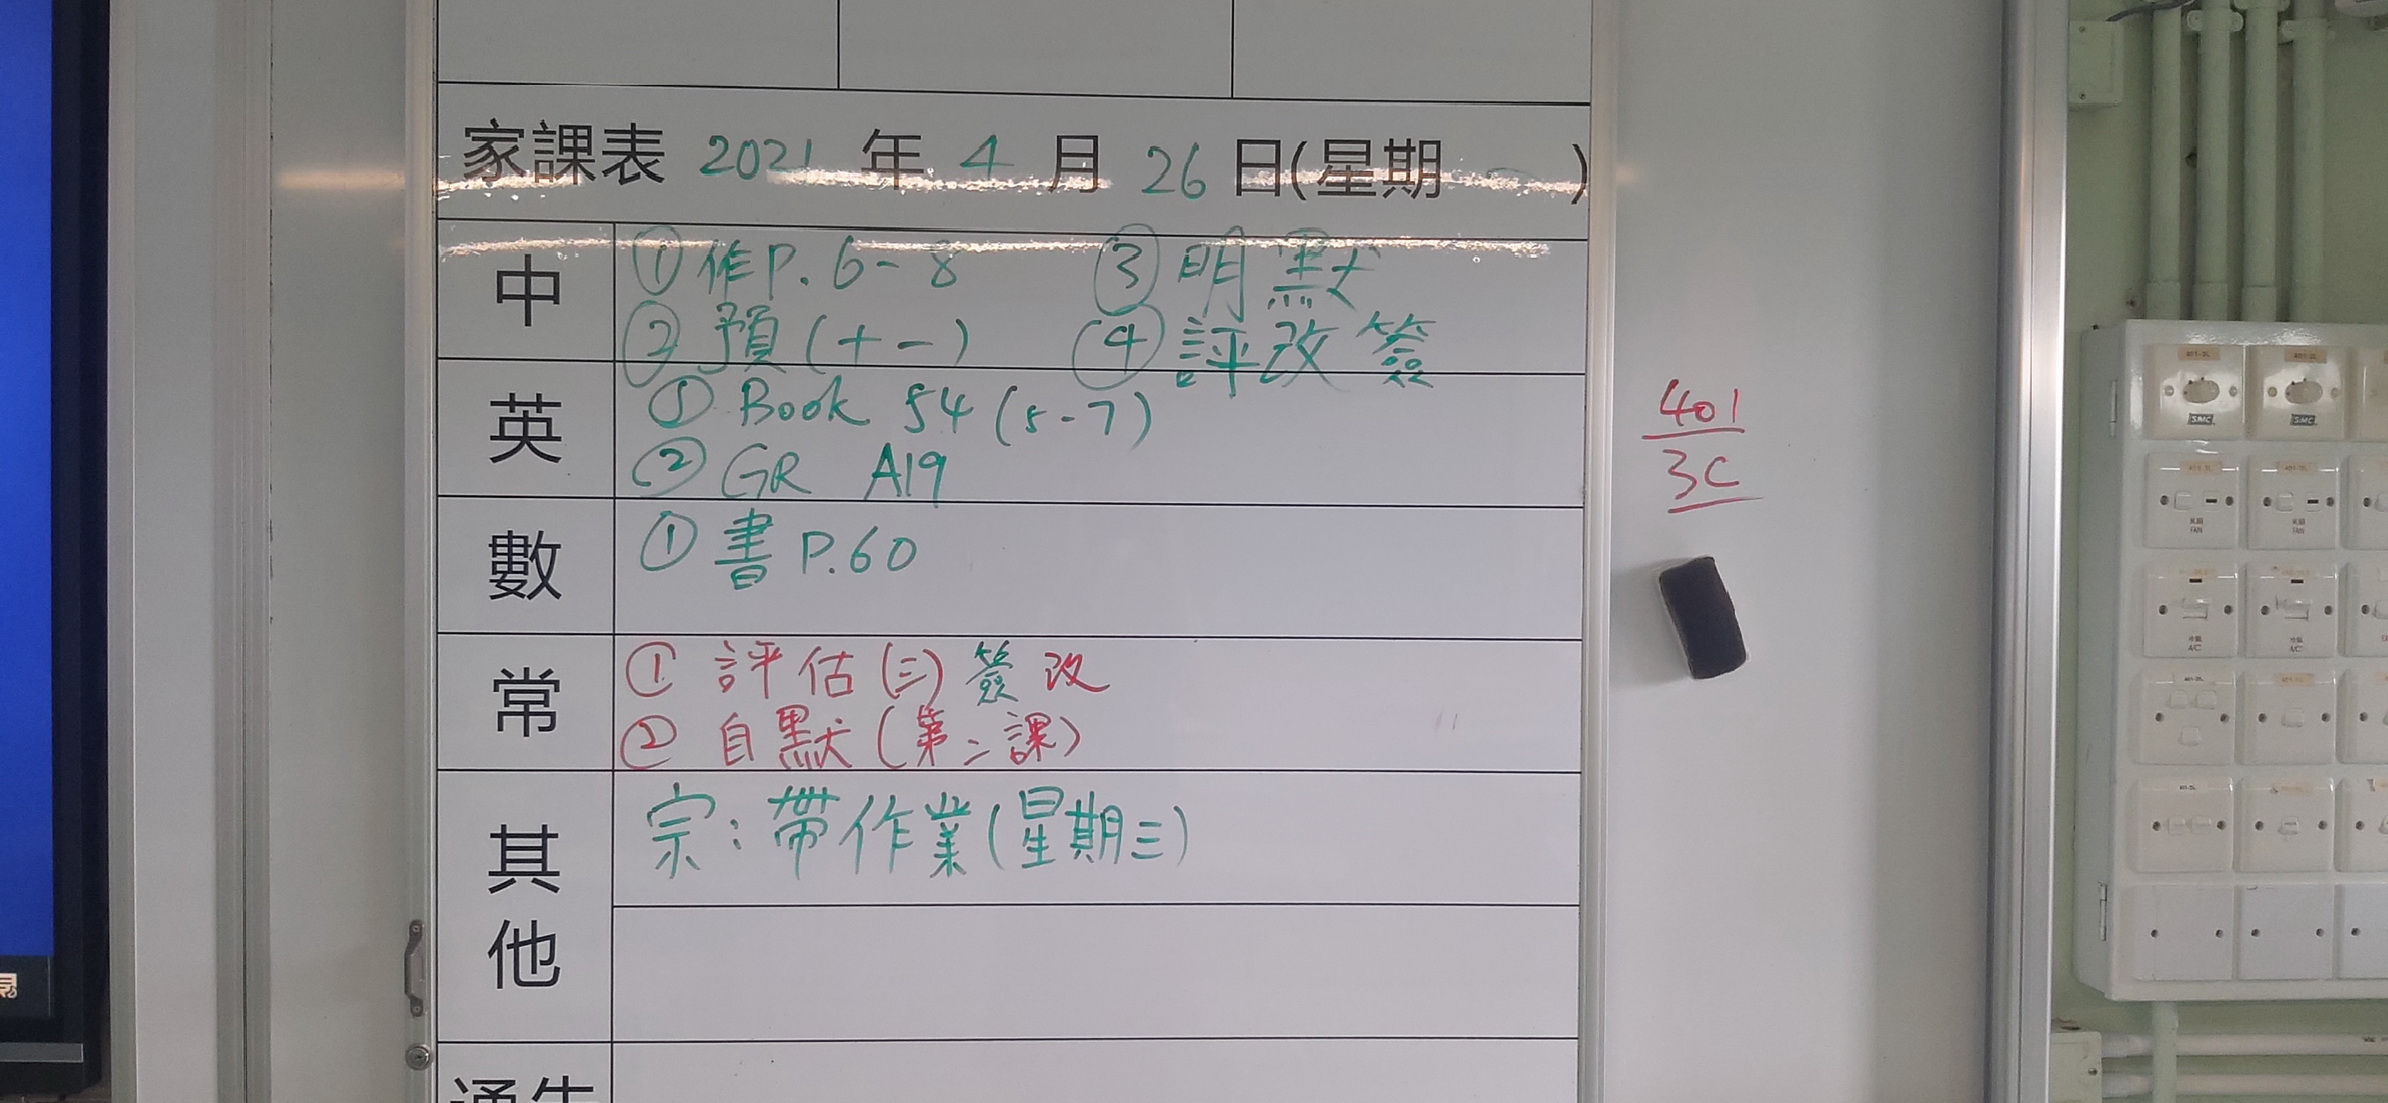 家課表 2021 年 4 月 26 日(星期 一 )
中
①作P. 6-8 ③明默
②預(十一) ④評改簽
英
① Book 54 (5-7)
② GR A19
數
①書 P.60
常
①評估(三)簽改
②自默(第二課)
其他
宗:帶作業(星期三)
401
3C